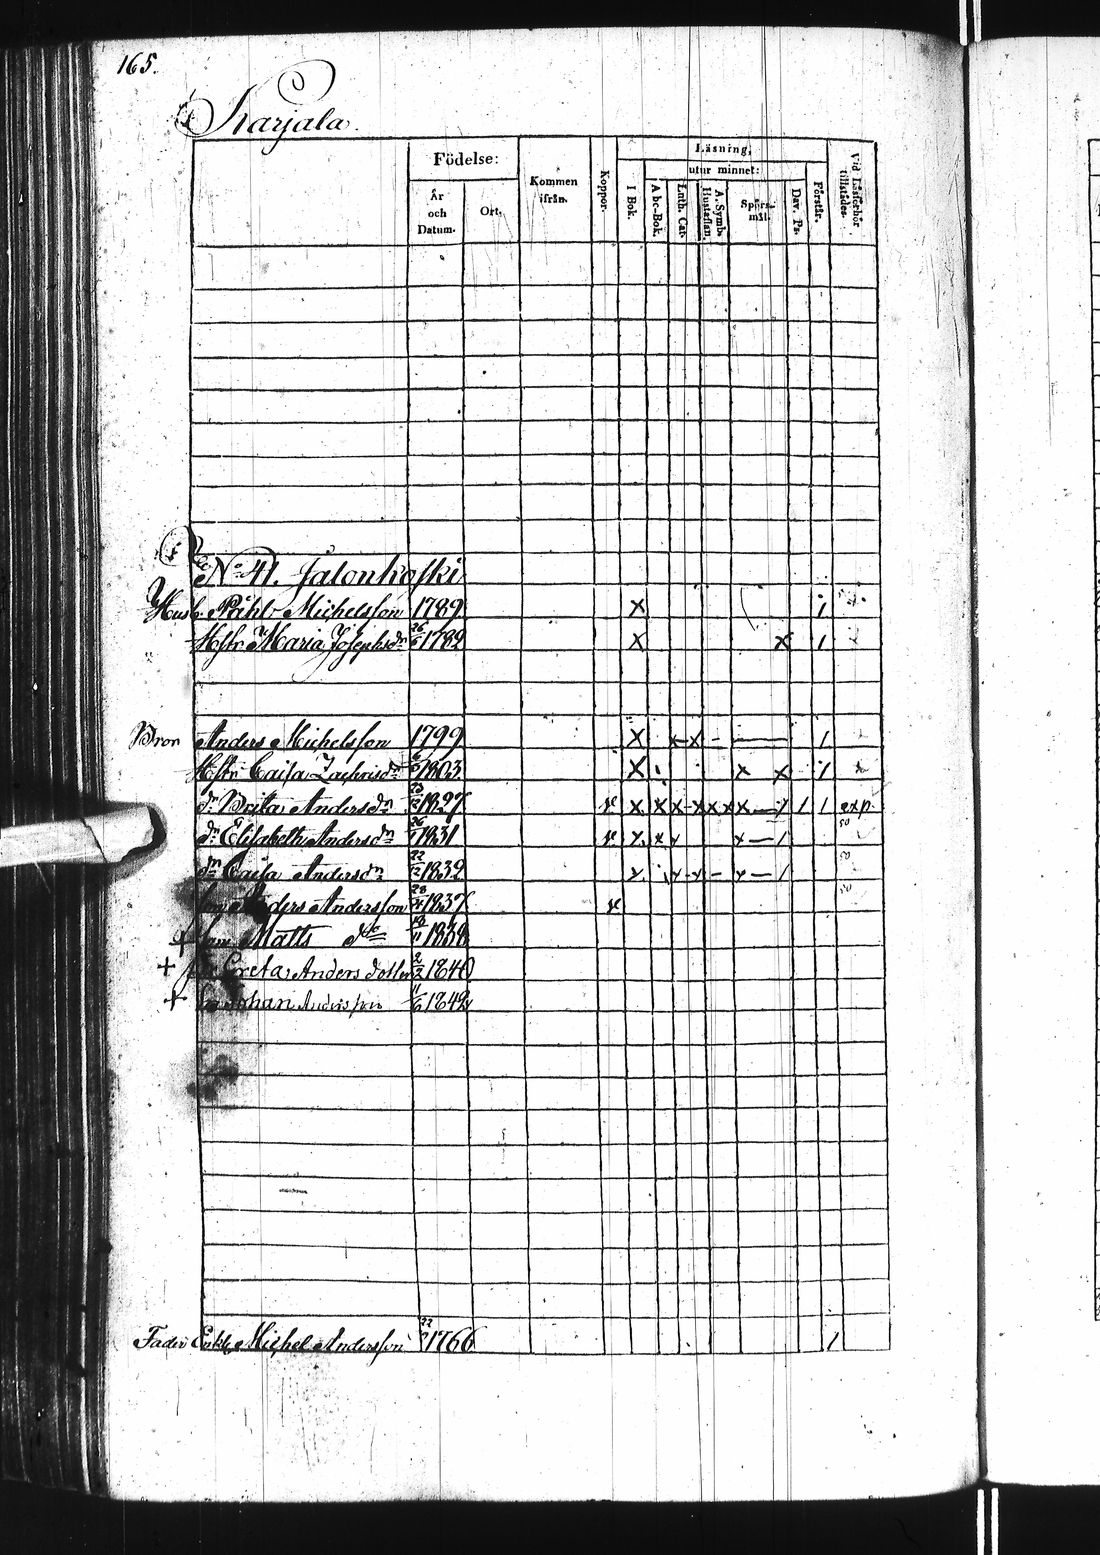 165.
Karjala.
Födelse:
År och Datum.
Ort.
Kommen ifrån.
Koppor.
Läsning,
utur minnet:
I Bok.
Abc-Bok.
Luth. Cat.
Hustaflan.
A. Symb.
Spörs-mål.
Dav. Ps.
Förstår.
Vid Läsförhör tillstädes.
No 41. Jalonkoski
Husb. Påhl Michelsson 1789 X 1
Hstr. Maria Josephsdr 1782 X X 1
Bror Anders Michelsson 1799 X 1
Hstr Caisa Zachrisdr 1803 X X X 1
dr Brita Andersdr 1827 exp.
dr Elisabeth Andersdr 1831
dr Caisa Andersdr 1832
son Anders Andersson 28 1837
+ son Matts do 1838
+ Greta Anders dotter 1840
+ Johan Andersson 1842
Fader Enkl. Michel Andersson 1766 1